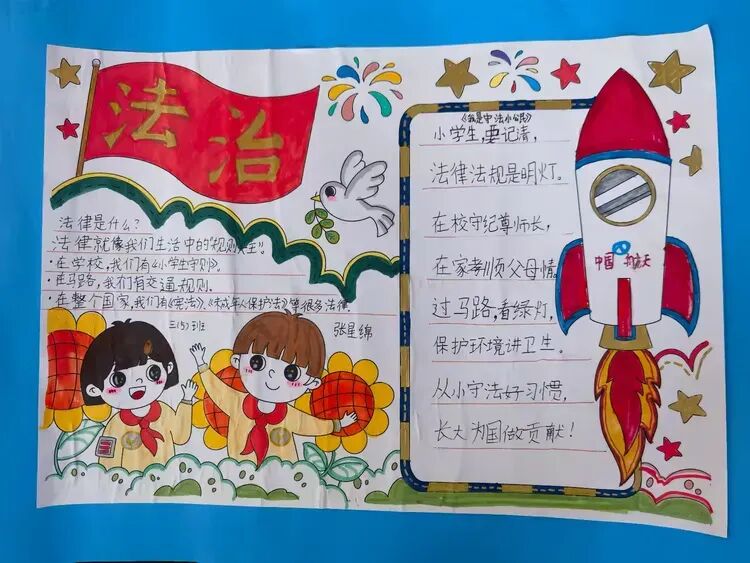 法治
法律是什么?
法律就像我们生活中的“规则大王”。
·在学校,我们有《小学生守则》。
·在马路,我们有交通规则。
·在整个国家,我们有《宪法》、《未成年人保护法》等很多法律.
三(5)班
张星绵
《我是守法小公民》
小学生要记清,
法律法规是明灯。
在校守纪尊师长,
在家孝顺父母情。
过马路,看绿灯,
保护环境讲卫生。
从小守法好习惯,
长大为国做贡献!
中国航天